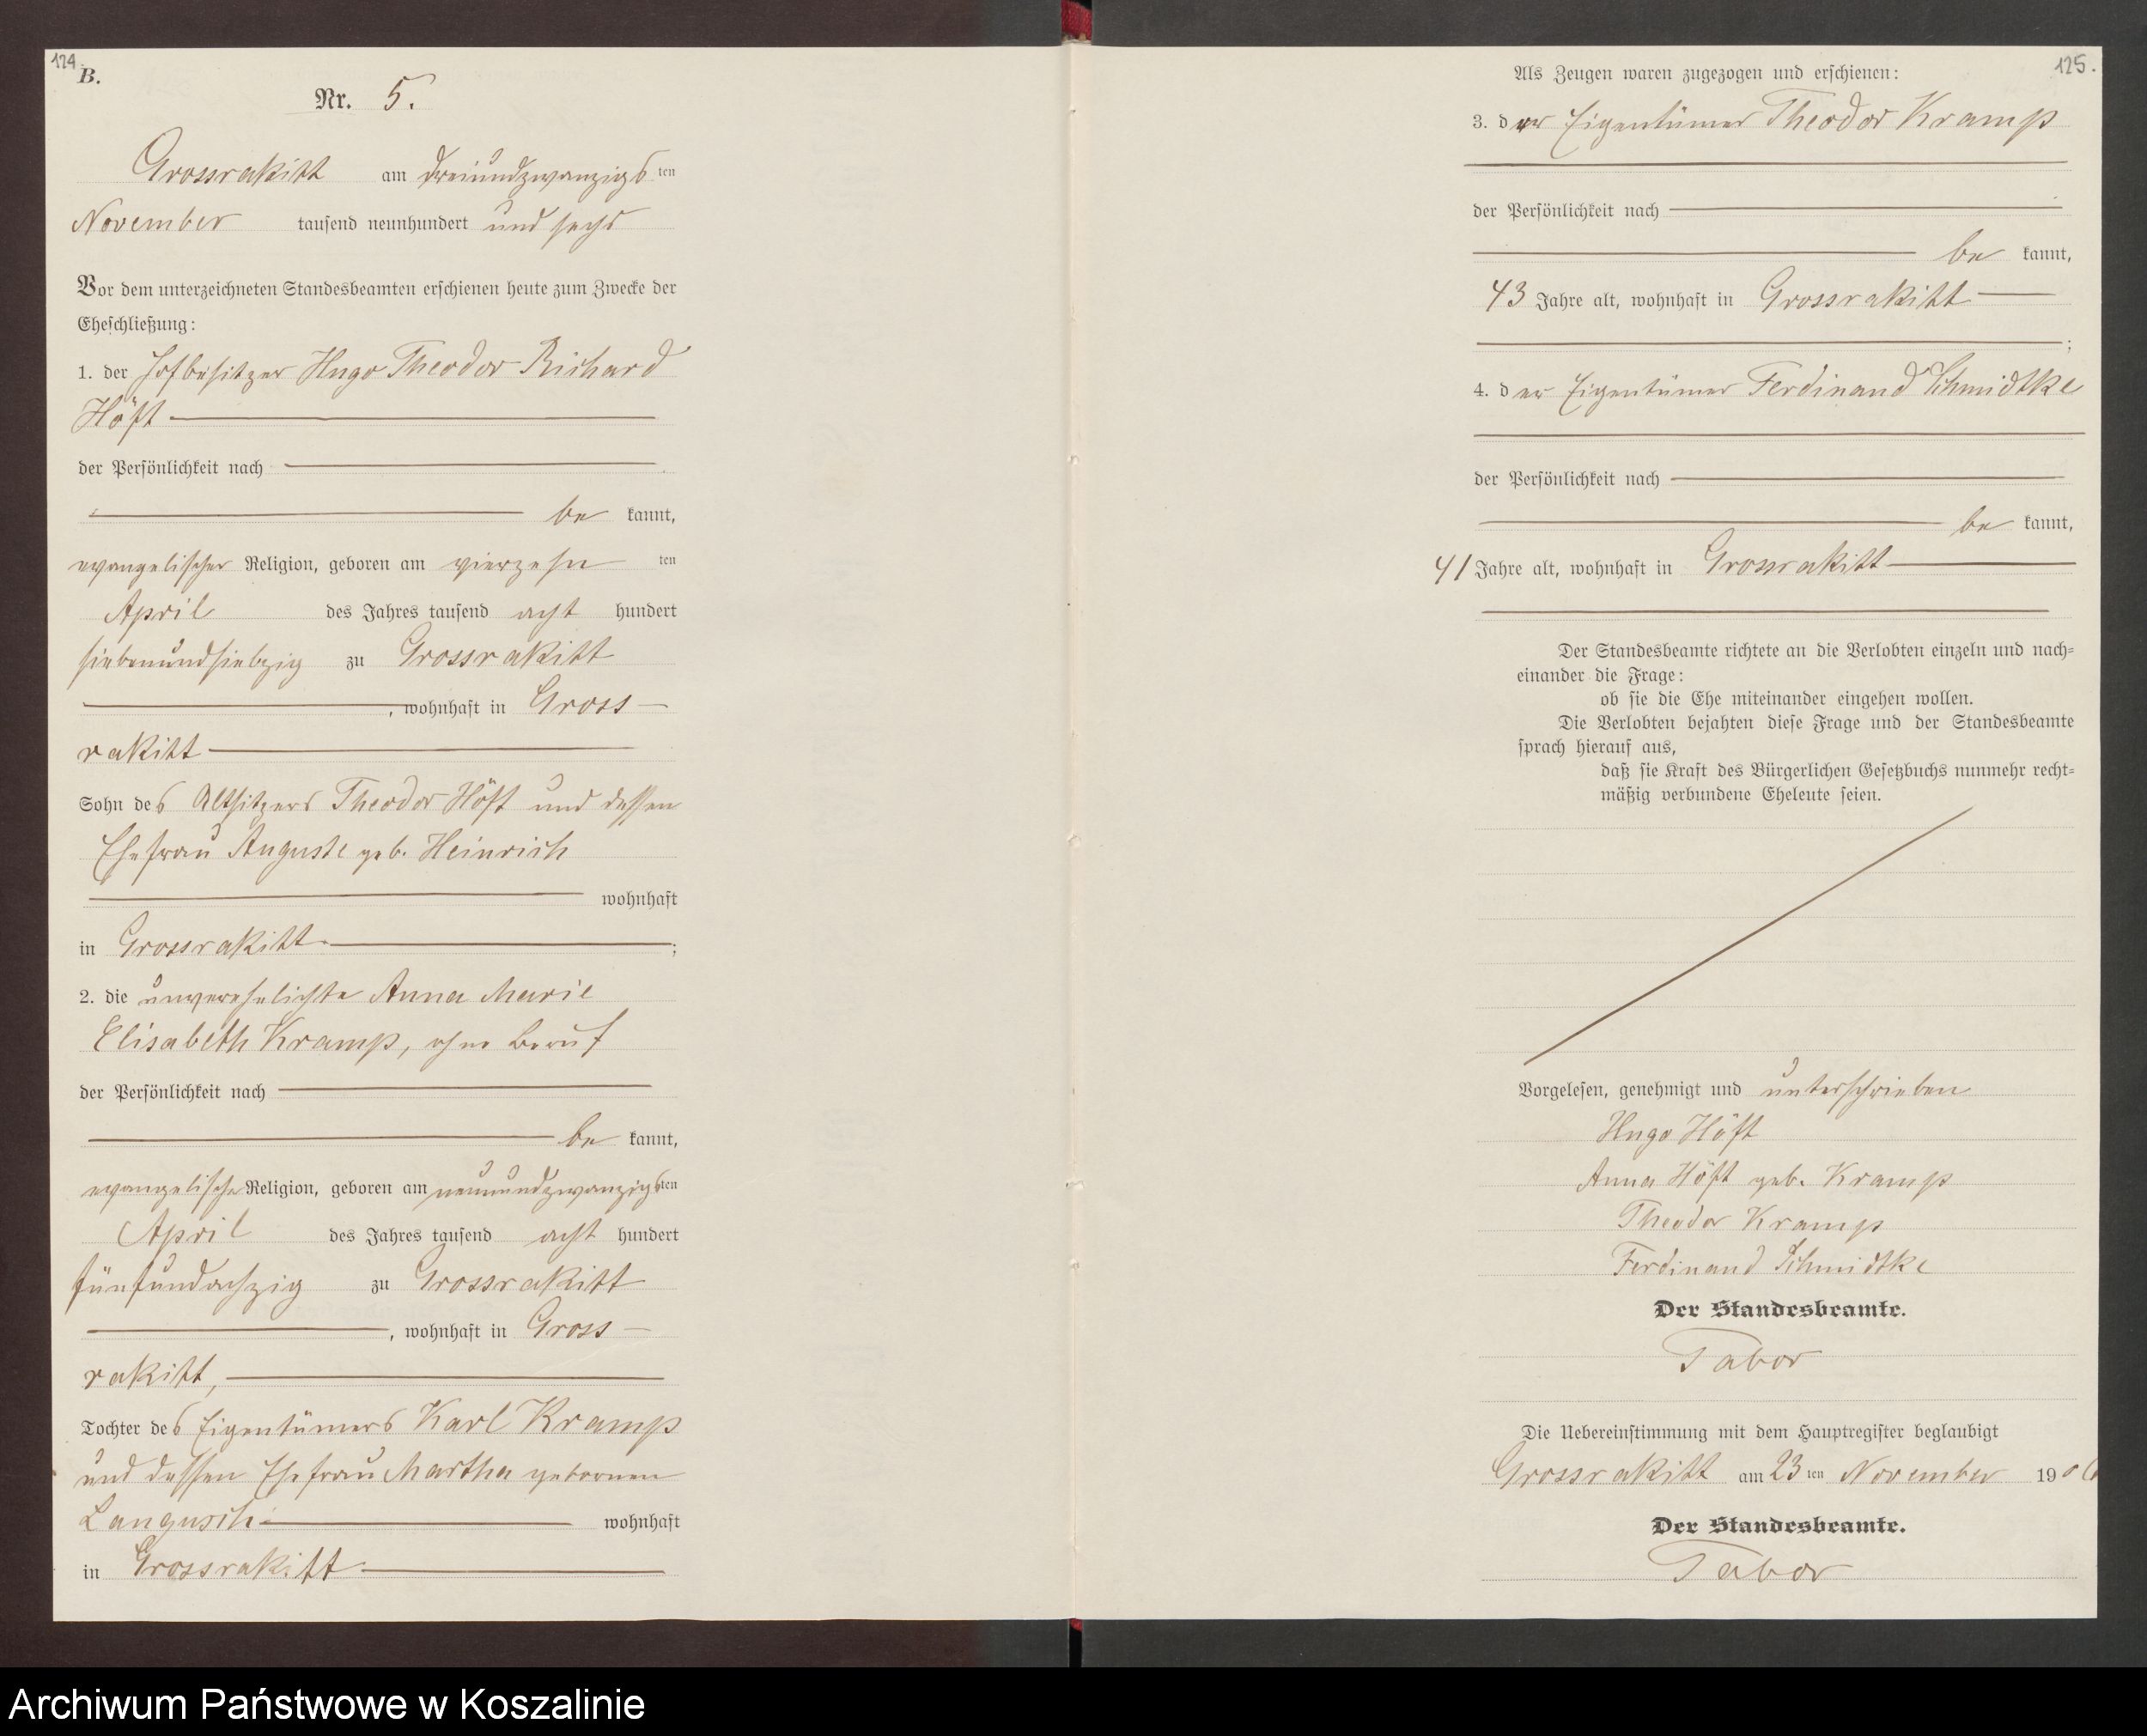 124.
B.
Nr. 5.
Grossrakitt am dreiundzwanzigs ten
November tausend neunhundert und sechs
Vor dem unterzeichneten Standesbeamten erschienen heute zum Zwecke der
Eheschließung:
1. der Hofbesitzer Hugo Theodor Richard
Höft
der Persönlichkeit nach
be kannt,
evangelischer Religion, geboren am vierzehn ten
April des Jahres tausend acht hundert
siebenundsiebzig zu Grossrakitt
, wohnhaft in Gross-
rakitt
Sohn des Altsitzers Theodor Höft und dessen
Ehefrau Auguste geb. Heinrich
wohnhaft
in Grossrakitt ;
2. die unverehelichte Anna Marie
Elisabeth Kramp, ohne Beruf
der Persönlichkeit nach
be kannt,
evangelische Religion, geboren am neunundzwanzigsten
April des Jahres tausend acht hundert
fünfundachzig zu Grossrakitt
, wohnhaft in Gross-
rakitt,
Tochter des Eigentümers Karl Kramp
und dessen Ehefrau Martha gebornen
wohnhaft
in Grossrakitt
125.
Als Zeugen waren zugezogen und erschienen:
3. der Eigentümer Theodor Kramp
der Persönlichkeit nach
be kannt,
43 Jahre alt, wohnhaft in Grossrakitt
;
4. der Eigentümer Ferdinand Schmidtke
der Persönlichkeit nach
be kannt,
41 Jahre alt, wohnhaft in Grossrakitt
Der Standesbeamte richtete an die Verlobten einzeln und nach-
einander die Frage:
ob sie die Ehe miteinander eingehen wollen.
Die Verlobten bejahten diese Frage und der Standesbeamte
sprach hierauf aus,
daß sie Kraft des Bürgerlichen Gesetzbuchs nunmehr recht-
mäßig verbundene Eheleute seien.
Vorgelesen, genehmigt und unterschrieben
Hugo Höft
Anna Höft geb. Kramp
Theodor Kramp
Ferdinand Schmidtke
Der Standesbeamte.
Tabor
Die Uebereinstimmung mit dem Hauptregister beglaubigt
Grossrakitt am 23 ten November 1906
Der Standesbeamte.
Tabor
Archiwum Państwowe w Koszalinie